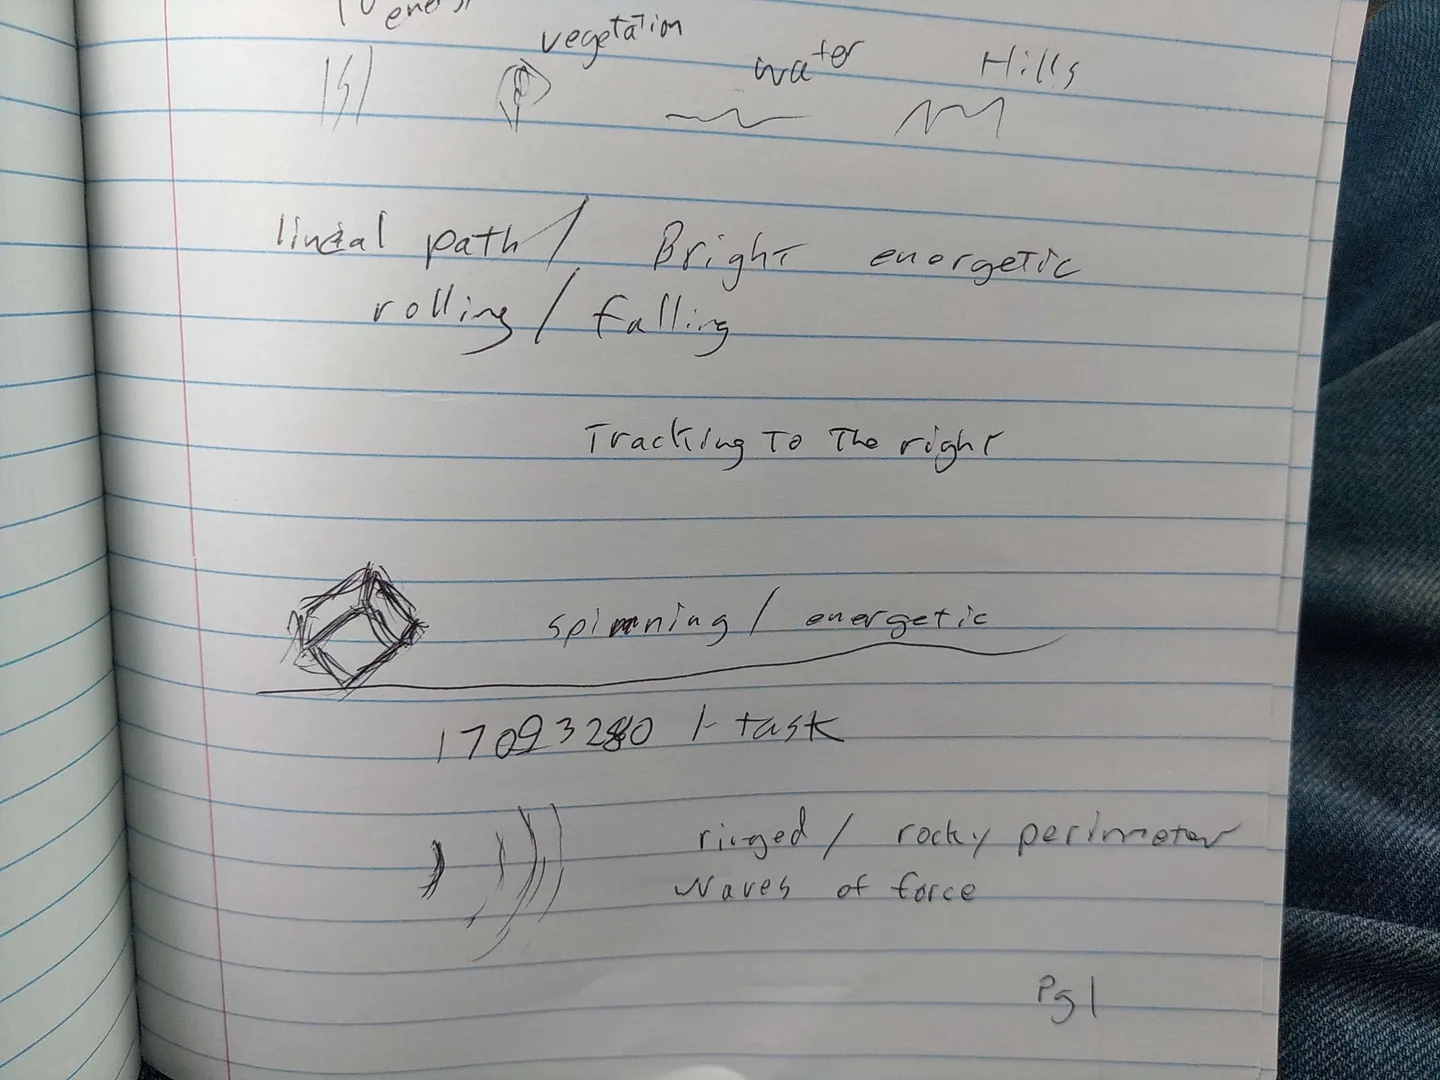 vegetation
water
Hills
linial path / Bright energetic
rolling / falling
Tracking To The right
spinning / energetic
17093280 1- task
ringed / rocky perimeter
waves of force
Pg 1